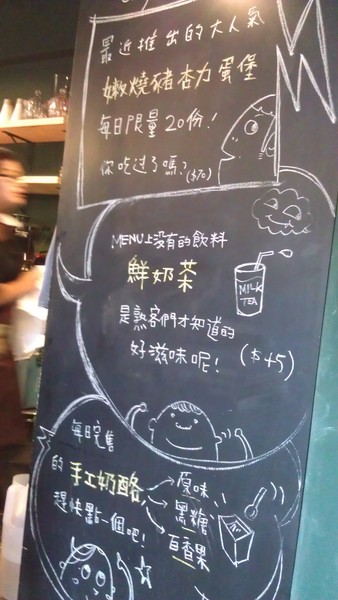 最近推出的大人氣
嫩燒豬杏力蛋堡
每日限量20份!
你吃过了嗎?($70)
MENU上没有的飲料
鮮奶茶
MILK
TEA
是熟客們才知道的
好滋味呢! ($45)
每日完售
的手工奶酪
原味
黑糖
百香果
趕快點一個吧!